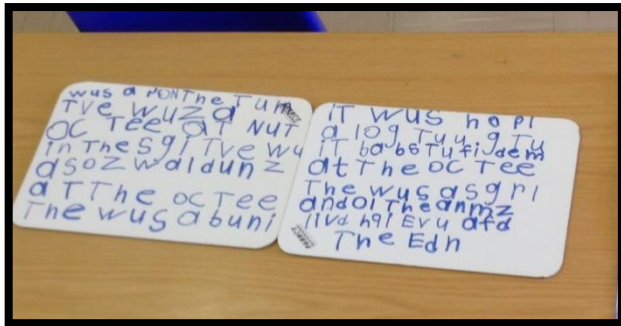 wus a PONThe Tum
Tve wuz a
OC Tee at NuT
in The sgi Tve wu
asoz waldunz
aTThe OC Tee
The wus a buni
iT wus hopi
a log Tuu g Tu
iT babs Tu fi dem
at The OC Tee
The wus a sgrl
andol The anmz
livd hqi Evu afd
The Edn